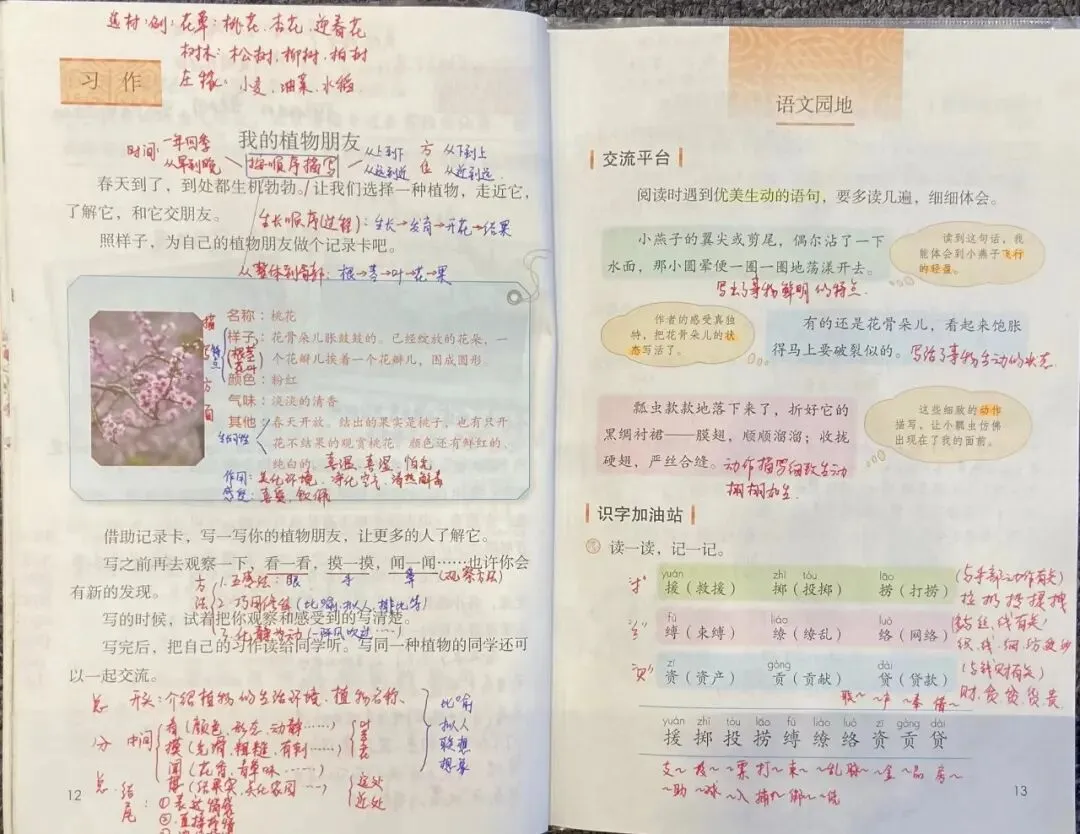 选材：例：花草：桃花、杏花、迎春花
树木：松树、柳树、柏树
庄稼：小麦、油菜、水稻
习 作
我的植物朋友
时间：一年四季
从早到晚
按顺序描写
从上到下 方 从下到上
从远到近 位 从近到远
春天到了，到处都生机勃勃。让我们选择一种植物，走近它，
了解它，和它交朋友。
生长顺序(过程)：生长→发育→开花→结果
照样子，为自己的植物朋友做个记录卡吧。
从整体到部分：根→茎→叶→花→果
描写方面
名称：桃花
样子：花骨朵儿胀鼓鼓的。已经绽放的花朵，一
个花瓣儿挨着一个花瓣儿，围成圆形。
颜色：粉红
气味：淡淡的清香
其他：春天开放。结出的果实是桃子，也有只开
花不结果的观赏桃花。颜色还有鲜红的、
纯白的。
生活习性
喜温、喜湿、怕光
作用：美化环境、净化空气、清热解毒
感受：喜爱、敬佩
借助记录卡，写一写你的植物朋友，让更多的人了解它。
写之前再去观察一下，看一看，摸一摸，闻一闻……也许你会
有新的发现。
方法
1.五感法：眼 手 鼻 (观察方法)
2.巧用修辞(比喻、拟人、排比等)
写的时候，试着把你观察和感受到的写清楚。
3.化静为动(一阵风吹过……)
写完后，把自己的习作读给同学听。写同一种植物的同学还可
以一起交流。
总 开头：介绍植物的生活环境、植物名称、
分 中间
看(颜色、形态、动静……)
摸(光滑、粗糙、有刺……)
闻(花香、青草味……)
叶
茎
花
远处
近处
比喻
拟人
联想
想象
总 结尾：
①表达情感
②直接抒情
12
语文园地
交流平台
阅读时遇到优美生动的语句，要多读几遍，细细体会。
小燕子的翼尖或剪尾，偶尔沾了一下
水面，那小圆晕便一圈一圈地荡漾开去。
读到这句话，我
能体会到小燕子飞行
的轻盈。
写出了事物鲜明的特点
作者的感受真独
特，把花骨朵儿的状
态写活了。
有的还是花骨朵儿，看起来饱胀
得马上要破裂似的。
写活了事物生动的状态
瓢虫款款地落下来了，折好它的
黑绸衬裙——膜翅，顺顺溜溜；收拢
硬翅，严丝合缝。
这些细致的动作
描写，让小瓢虫仿佛
出现在了我的面前。
动作描写细致生动
栩栩如生
识字加油站
读一读，记一记。
yuán zhì tóu lāo
援（救援） 掷（投掷） 捞（打捞）
(与手部动作有关)
fù liáo luò
缚（束缚） 缭（缭乱） 络（网络）
(与丝、线有关)
zī gòng dài
资（资产） 贡（贡献） 贷（贷款）
(与钱财有关)
yuán zhì tóu lāo fù liáo luò zī gòng dài
援 掷 投 捞 缚 缭 络 资 贡 贷
13